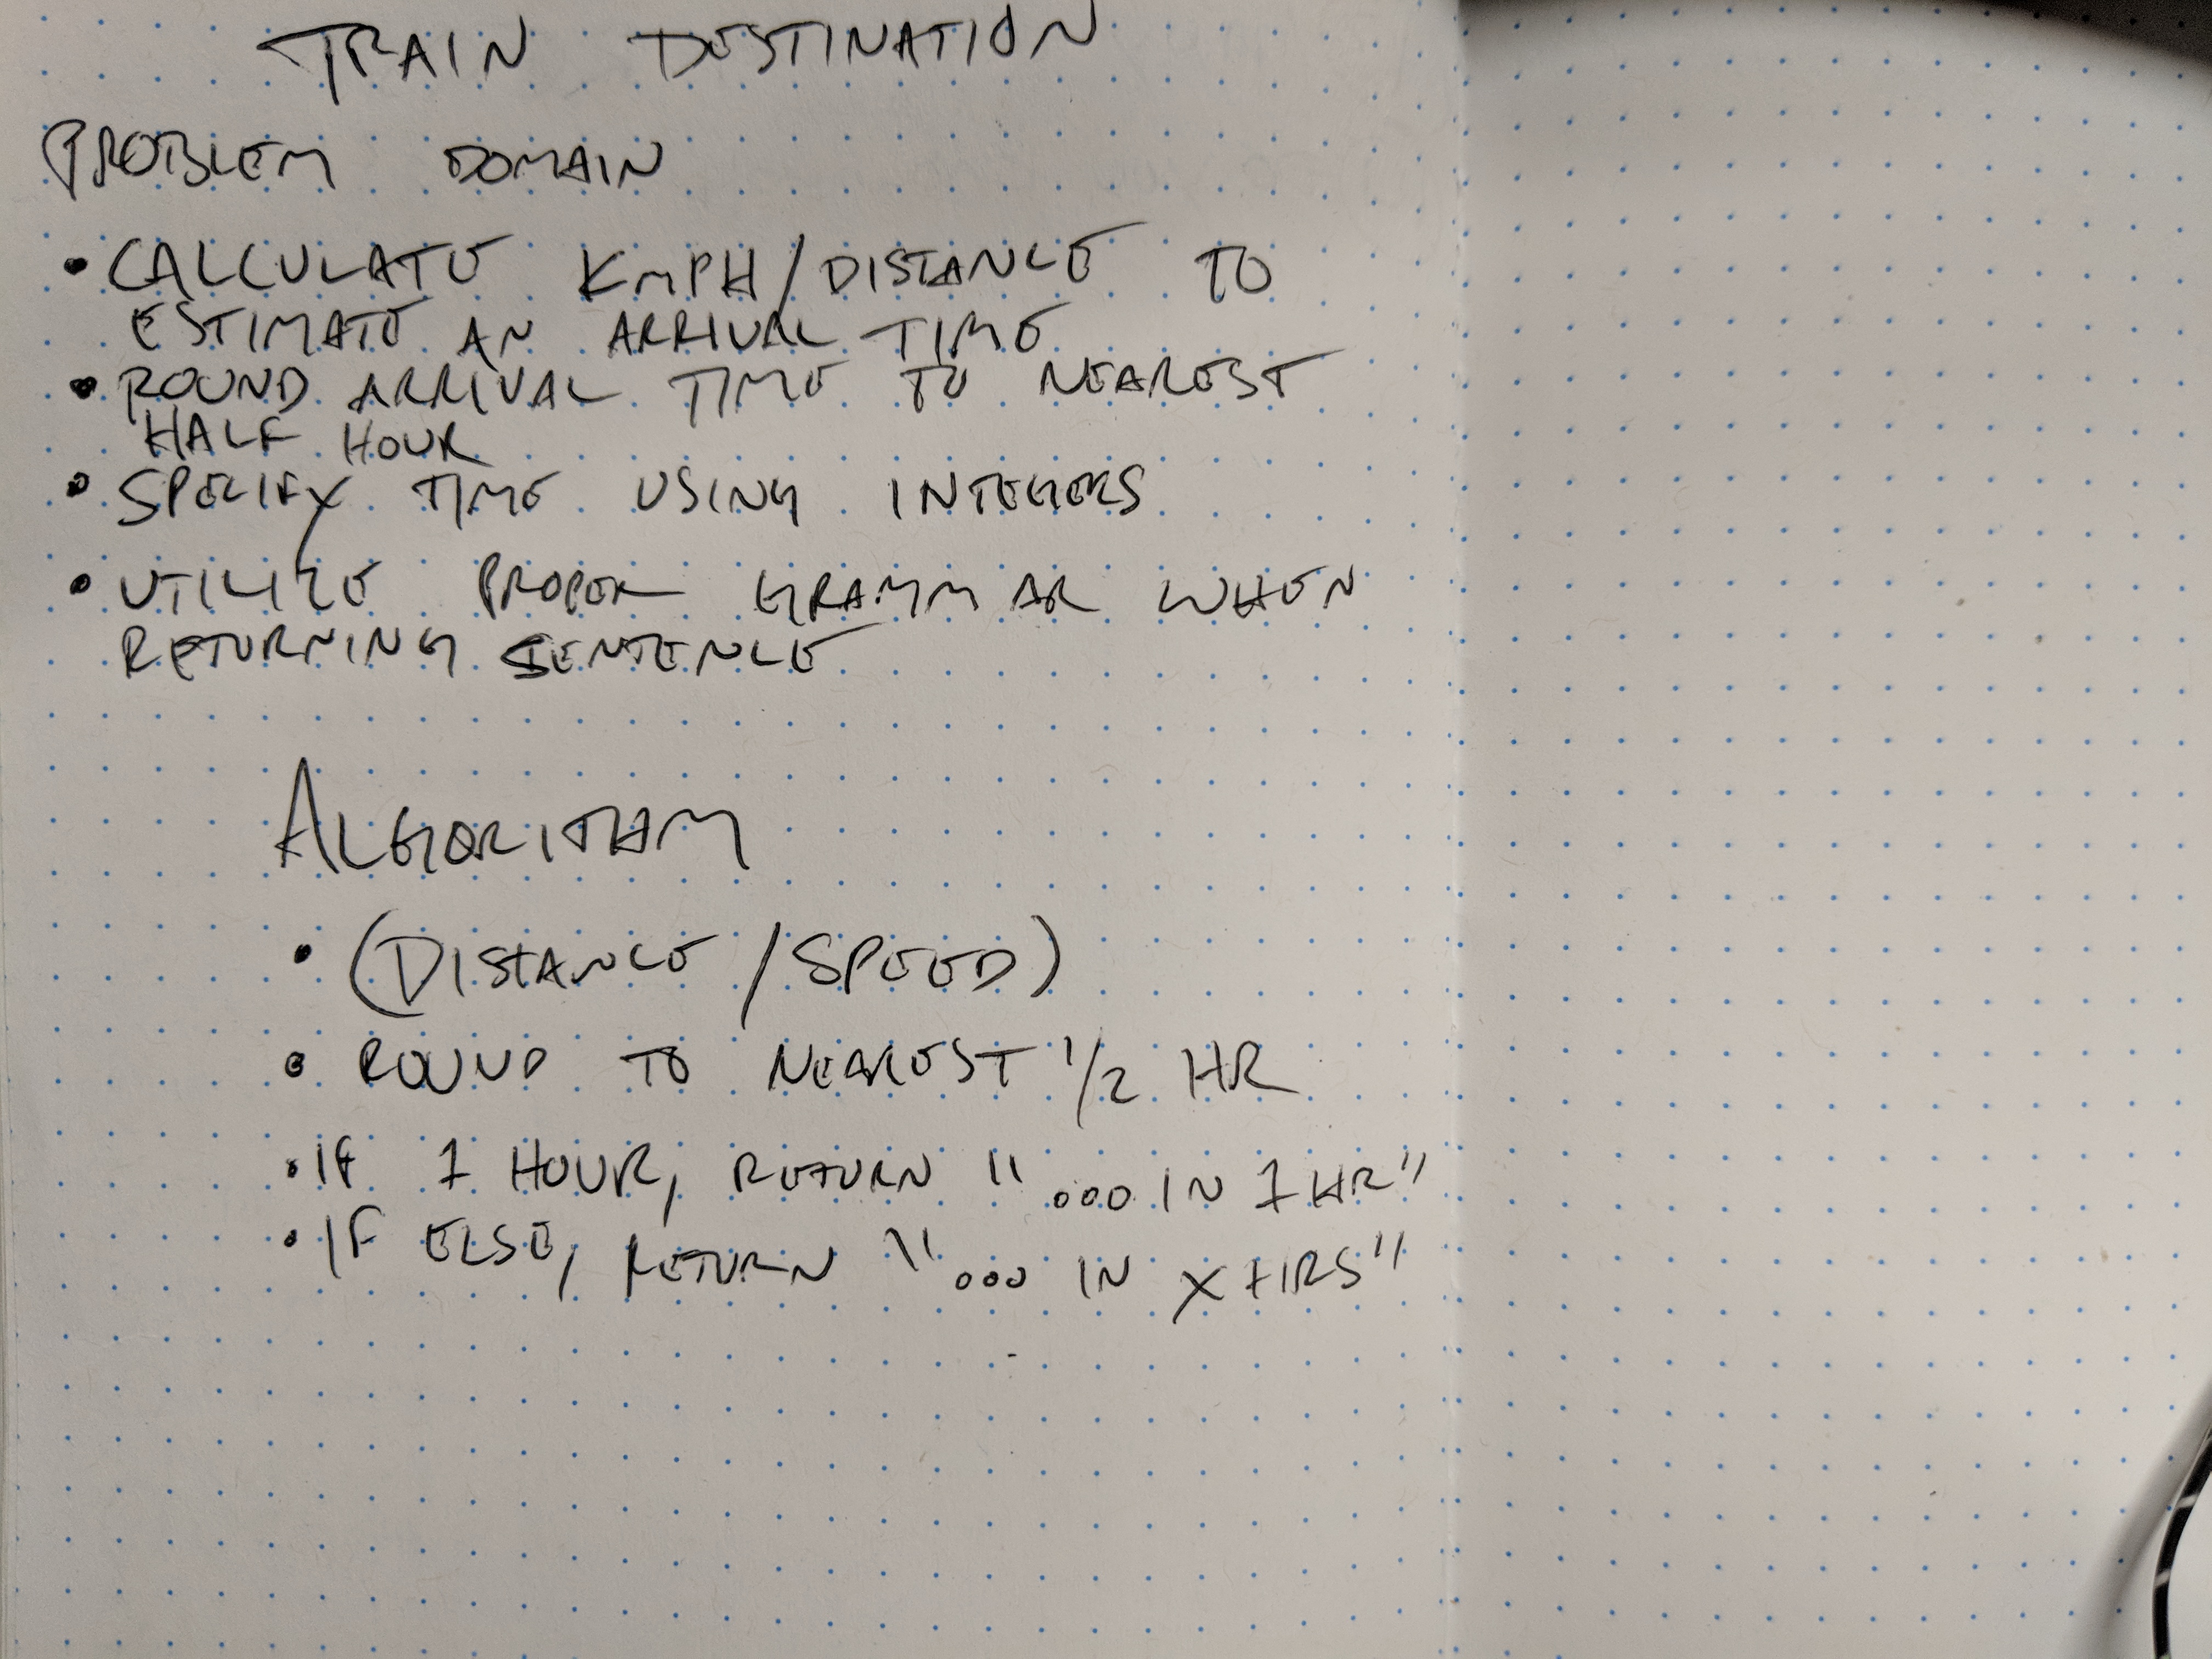 TRAIN DESTINATION
PROBLEM DOMAIN
• CALCULATE KMPH/DISTANCE TO
ESTIMATE AN ARRIVAL TIME
• ROUND ARRIVAL TIME TO NEAREST
HALF HOUR
• SPECIFY TIME USING INTEGERS
• UTILIZE PROPER GRAMMAR WHEN
RETURNING SENTENCE
ALGORITHM
• (DISTANCE/SPEED)
• ROUND TO NEAREST 1/2 HR
• IF 1 HOUR, RETURN "...IN 1 HR"
• IF ELSE, RETURN "... IN X HRS"